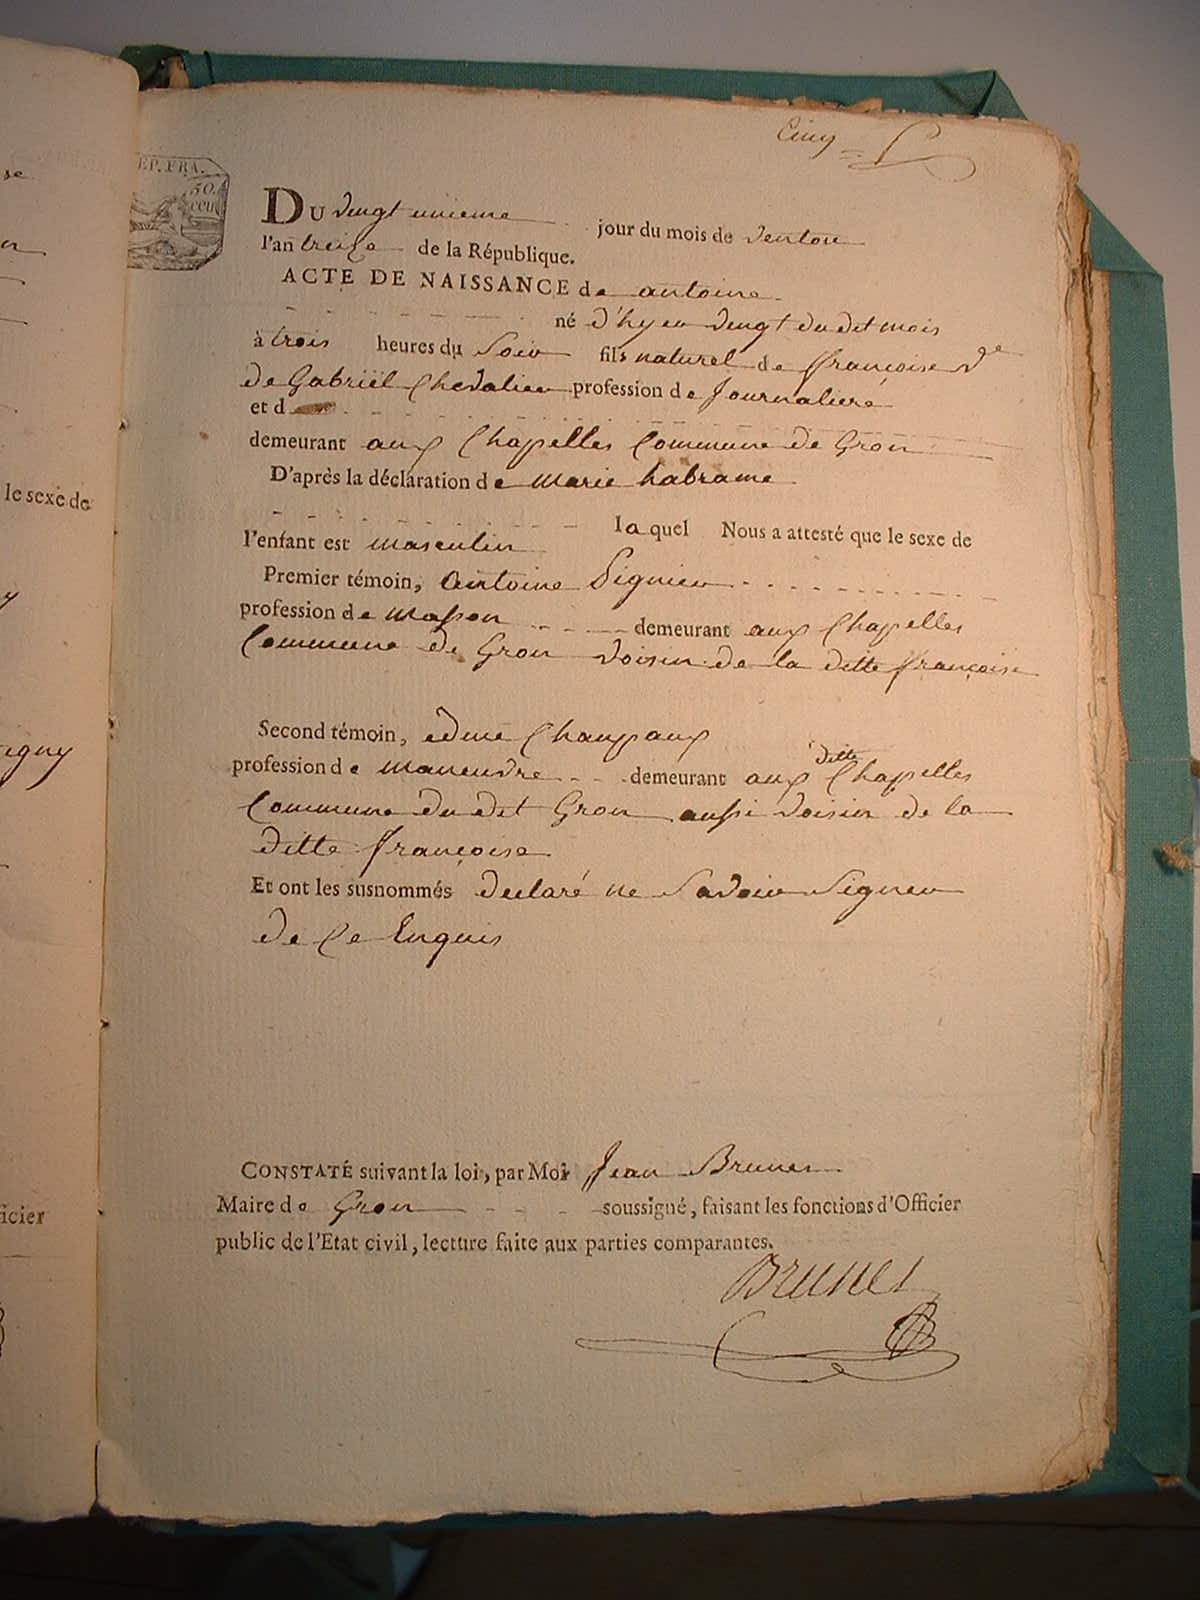 Cinq
EP. FRA.
50.
cen
Du vingt unieme jour du mois de ventou
l'an treize de la République.
ACTE DE NAISSANCE de antoine
né d'hyer vingt du dit mois
à trois heures du Soir fils naturel de françoise Ve
de Gabriël Chevalier profession de Journaliere
et d
demeurant aux Chapelles Commune de Gron
D'après la déclaration de marie
laquel Nous a attesté que le sexe de
l'enfant est masculin
Premier témoin, antoine Signier
profession de masson demeurant aux Chapelles
Commune de Gron voisin de la ditte françoise
Second témoin, edme
profession de maneuvre demeurant aux ditte Chapelles
Commune du dit Gron aussi voisin de la
ditte françoise
Et ont les susnommés declaré ne Savoir Signer
de Ce Enquis
CONSTATÉ suivant la loi, par Moi Jean Brunet
Maire de Gron soussigné, faisant les fonctions d'Officier
public de l'Etat civil, lecture faite aux parties comparantes.
Brunet
se
le sexe de
igny
icier